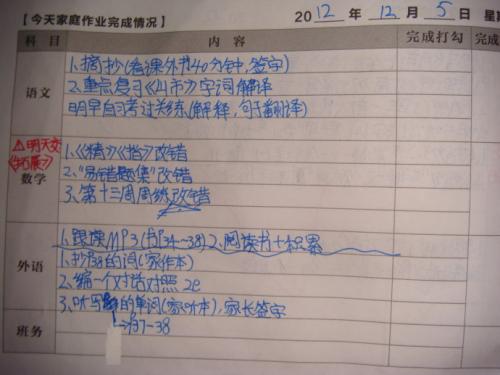 【今天家庭作业完成情况】 2012年12月5日 星
科目 内容 完成打勾 完成
语文
1.摘抄(看课外书40分钟,签字)
2.重点复习《山市》字词解译
明早自习考过关练(解释,句子翻译)
△明天交
《拓展》
数学
1.《精》《指》改错
2."易错题集"改错
3.第十三周周练改错
外语
1.跟读MP3(书P34~38)2.阅读书+积累
1.抄P38的词(家作本)
2.编一个对话对照2e
3.听写的单词(家听本),家长签字
→P37-38
班务